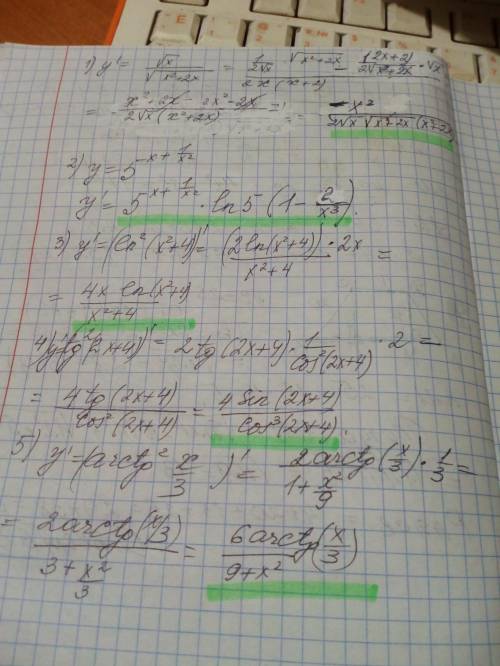 1) y' = √x / √(x²+2x) = (1/(2√x) · √(x²+2x) − (2x+2)/(2√(x²+2x)) · √x) / (x(x+2))
= (x²+2x − 2x²−2x) / (2√x (x²+2x)) = −x² / (2√x √(x²+2x) (x²+2x))
2) y = 5^(x+1/x²)
y' = 5^(x+1/x²) · ln5 (1 − 2/x³).
3) y' = (ln²(x²+4))' = (2ln(x²+4)) · 2x / (x²+4) =
= 4x ln(x²+4) / (x²+4)
4) y' = (tg²(2x+4))' = 2tg(2x+4) · 1/cos²(2x+4) · 2 =
= 4tg(2x+4) / cos²(2x+4) = 4sin(2x+4) / cos³(2x+4).
5) y' = (arctg² x/3)' = 2arctg(x/3) / (1+x²/9) · 1/3 =
= 2arctg(x/3) / (3+x²/3) = 6arctg(x/3) / (9+x²)